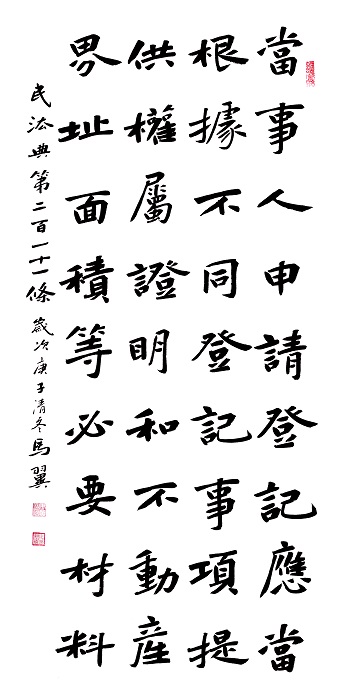 當事人申請登記應當
根據不同登記事項提
供權屬證明和不動産
界址面積等必要材料
民法典第二百一十一條 歲次庚子清冬馬翼